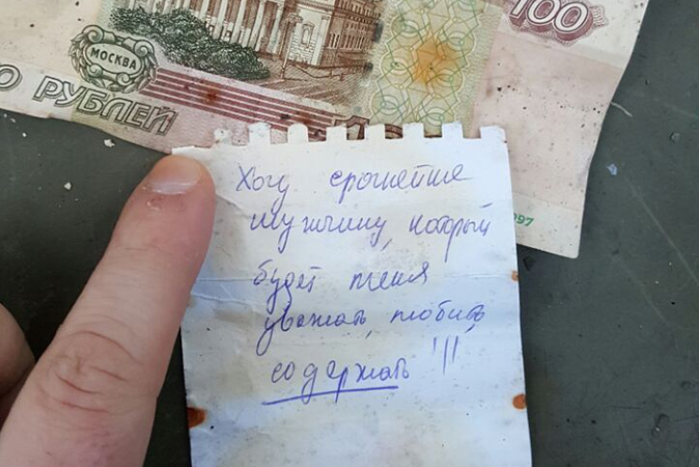 100
МОСКВА
О РУБЛЕЙ
1997
Хочу срочнейше
мужчину, который
будет меня
уважать, любить,
содержать !!!